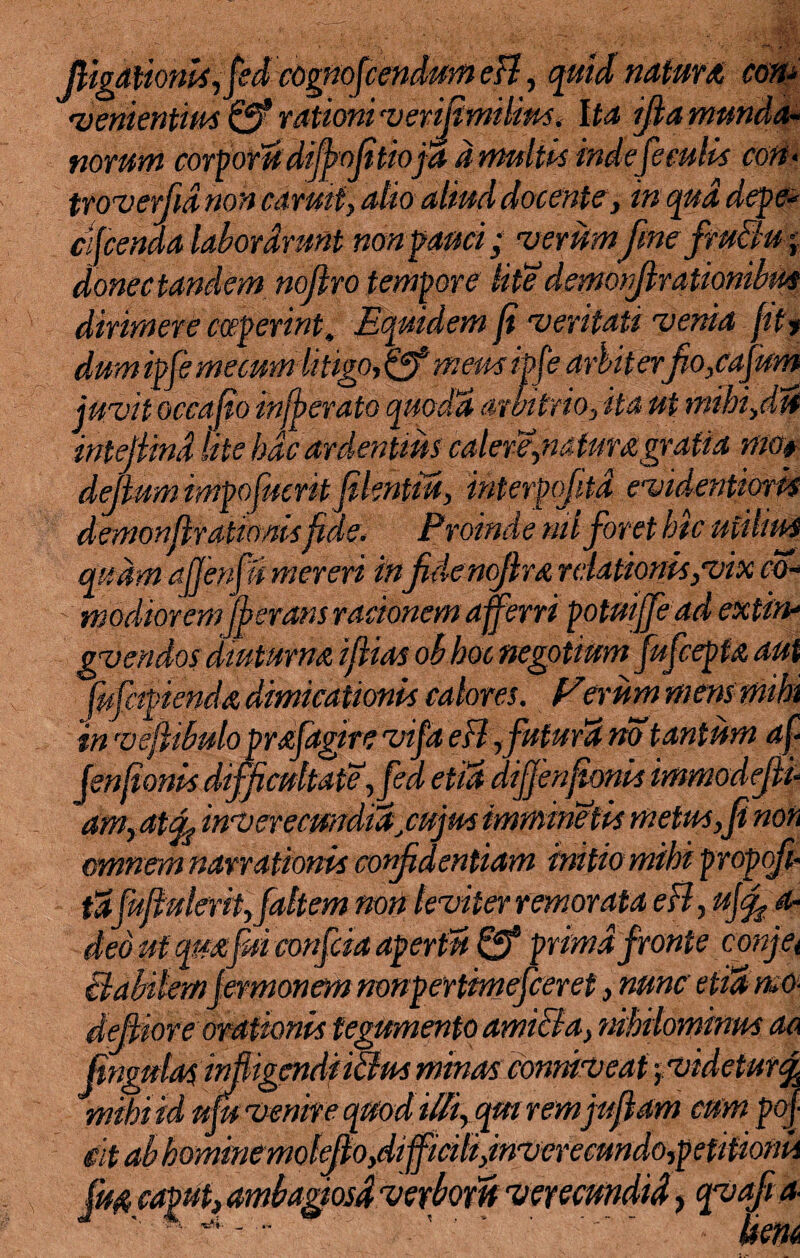 ſtigationis, ſed cognoſcendum eſt, quid naturæ con-
venientius & rationi veriſimilius. Ita iſta munda-
norum corporũ diſpoſitio jã à multis inde ſeculis con-
troverſiâ non caruit, alio aliud docente, in quâ depe-
ciſcenda laborârunt non pauci; verùm ſine fructu;
donec tandem noſtro tempore litẽ demonſtrationibus
dirimere cœperint. Equidem ſi veritati venia ſit,
dum ipſe mecum litigo, & meus ipſe arbiter fio, caſum
juvit occaſio inſperato quodã arbitrio, ita ut mihi, dũ
inteſtinâ lite hâc ardentiùs calerẽ, naturæ gratia mo-
deſtum impoſuerit ſilentiũ, interpoſitâ evidentioris
demonſtrationis fide. Proinde nil foret hîc utilius
quàm aſſenſũ mereri in fide noſtræ relationis, vix cõ-
modiorem ſperans racionem afferri potuiſſe ad extin-
gvendos diuturnæ iſtias ob hoc negotium ſuſceptæ aut
ſuſcipiendæ dimicationis calores. Verùm mens mihi
in veſtibulo præſagire viſa eſt, futurã nõ tantùm aſ-
ſenſionis difficultatẽ, ſed etiã diſſenſionis immodeſti-
am, atq; inverecundiã, cujus imminẽtis metus, ſi non
omnem narrationis confidentiam initio mihi propoſi-
tã ſuſtulerit, ſaltem non leviter remorata eſt, uſq; a-
deò ut quæ ſui conſcia apertũ & primâ fronte conje-
ctabilem ſermonem non pertimeſceret, nunc etiã mo-
deſtiore orationis tegumento amicta, nihilominus ad
ſingulas infligendi ictus minas conniveat; videturq;
mihi id uſu venire quod illi, qui rem juſtam cum poſ-
cit ab homine moleſto, difficili, inverecundo, petitionis
ſuæ caput, ambagiosâ verborũ verecundiâ, qvaſi a-
liena